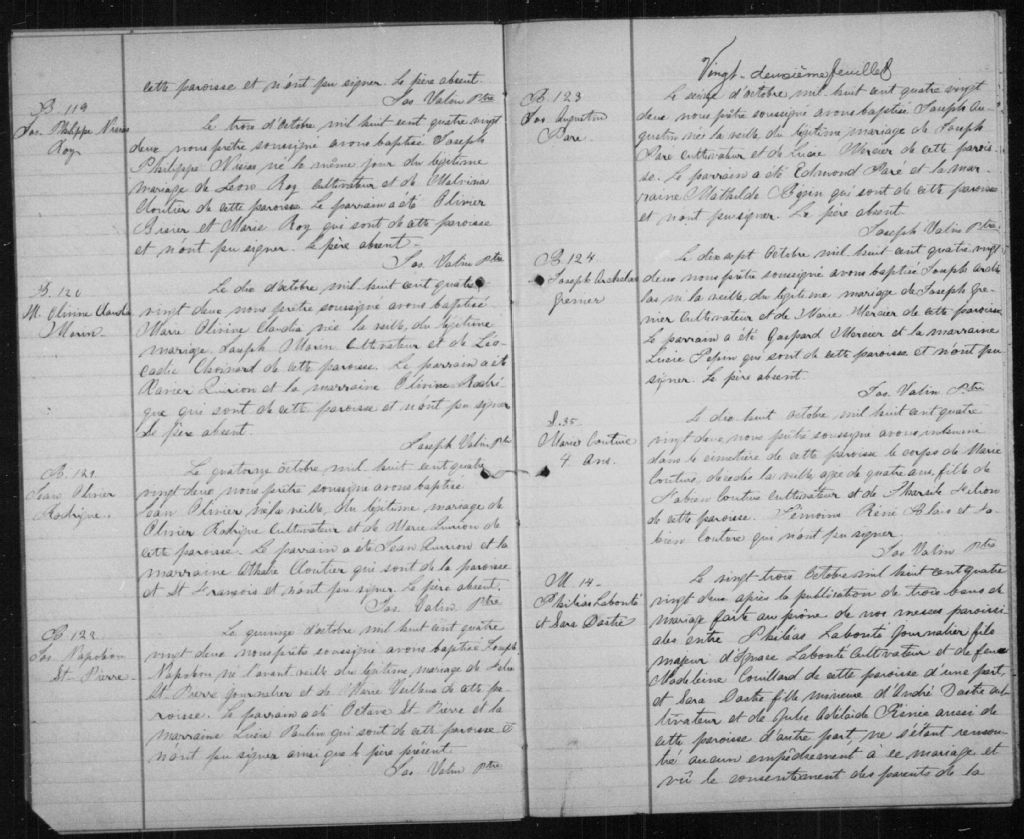 cette paroisse et n'ont pu signer. Le père absent.
Jos Valin Ptre
B. 119
Jos. Philippe Nisus
Roy
Le trois d'Octobre mil huit cent quatre vingt
deux nous prêtre soussigné avons baptisé Joseph
Philippe né le même jour du légitime
mariage de Leon Roy Cultivateur et de Malvina
Cloutier de cette paroisse. Le parrain a été Olivier
et Marie Roy qui sont de cette paroisse
et n'ont pu signer. Le père absent.
Jos. Valin Ptre
B. 120
M. Olivine Claudia
Morin
Le dix d'octobre mil huit cent quatre
vingt deux nous prêtre soussigné avons baptisé
Marie Olivine Claudia née la veille, du légitime
mariage Joseph Morin Cultivateur et de Léo-
cadie Chouinard de cette paroisse. Le parrain a été
Xavier Quirion et la marraine Olivine Rodri
gue qui sont de cette paroisse et n'ont pu signer
Le père absent.
Joseph Valin Ptre
B. 121
Jean Olivier
Rodrigue.
Le quatorze octobre mil huit cent quatre
vingt deux nous prêtre soussigné avons baptisé
Jean Olivier né la veille, du légitime mariage de
Olivier Rodrigue Cultivateur et de Marie Quirion de
cette paroisse. Le parrain a été Jean Quirion et la
marraine Cloutier qui sont de la paroisse
et St François et n'ont pu signer. Le père absent.
Jos. Valin Ptre
B. 122
Jos. Napoléon
St-Pierre
Le quinze d'octobre mil huit cent quatre
vingt deux nous prêtre soussigné avons baptisé Joseph
Napoléon né l'avant veille du légitime mariage de
St. Pierre Journalier et de Marie Veilleux de cette pa-
roisse. Le parrain a été Octave St Pierre et la
marraine Lucie Poulin qui sont de cette paroisse et
n'ont pu signer ainsi que le père présent.
Jos Valin Ptre
Vingt-deuxième feuillet
B. 123
Jos Augustin
Paré.
Le seize d'octobre mil huit cent quatre vingt
deux nous prêtre soussigné avons baptisé Joseph Au-
gustin né la veille du légitime mariage de Joseph
Paré Cultivateur et de Lucie Mercier de cette parois-
se. Le parrain a été Edmond Paré et la mar-
raine Mathilde Pépin qui sont de cette paroisse
et n'ont pu signer. Le père absent.
Joseph Valin Ptre.
B. 124.
Joseph Archelas
Grenier
Le dix sept Octobre mil huit cent quatre vingt
deux nous prêtre soussigné avons baptisé Joseph Arche
las né la veille, du légitime mariage de Joseph Gre-
nier Cultivateur et de Marie Mercier de cette paroisse
Le parrain a été Gaspard Mercier et la marraine
Lucie Pépin qui sont de cette paroisse et n'ont pu
signer. Le père absent.
Jos. Valin Ptre
S. 35
Marie Couture
4 Ans.
Le dix huit octobre mil huit cent quatre
vingt deux nous prêtre soussigné avons inhumé
dans le cimetière de cette paroisse le corps de Marie
Couture, décédée la veille agée de quatre ans, fille de
Fabien Couture cultivateur et de Tharsile Filion
de cette paroisse. Témoins René et Fa-
bien Couture qui n'ont pu signer
Jos Valin Ptre
M 14
Philéas Labonté
et Sara Dostie
Le vingt trois Octobre mil huit cent quatre
vingt deux après la publication de trois bans de
mariage faite au prône de nos messes paroissi
ales entre Philéas Labonté Journalier fils
majeur d'Ignace Labonté Cultivateur et de feue
Madeleine Couillard de cette paroisse d'une part,
et Sara Dostie fille mineure d'André Dostie cul-
tivateur et de Julie Adélaïde aussi de
cette paroisse d'autre part, ne s'étant rencon-
tré aucun empêchement à ce mariage et
vû le consentement des parents de la